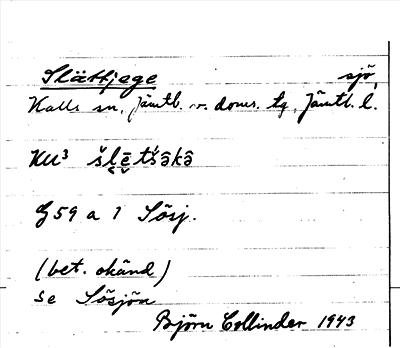 Slättjege sjö
Kalls sn, Jämtl. v. doms. tg, Jämtl. l.
KU³ š́l̯ē̬tśəkə̂
G 59 a 1 Sösj.
(bet. okänd)
Se Sösjön
Björn Collinder 1943